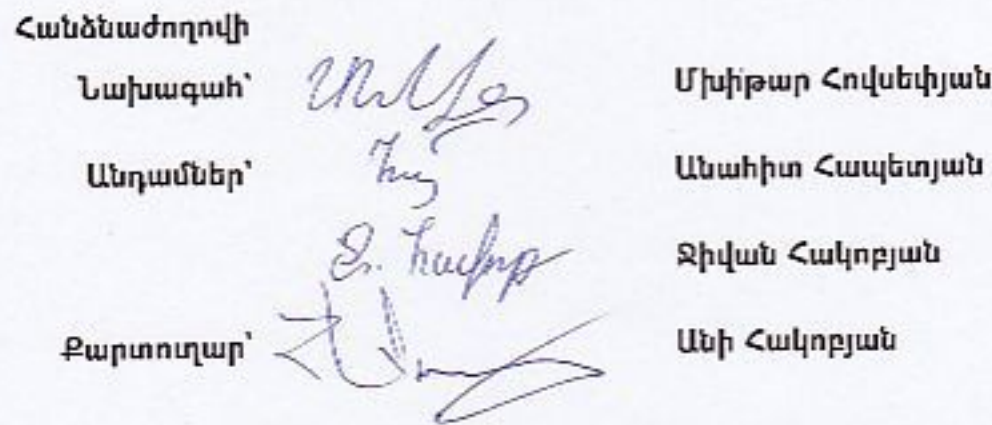 Հանձնաժողովի
Նախագահ՝ Մխիթար Հովսեփյան
Անդամներ՝ Անահիտ Հապետյան
Ջիվան Հակոբյան
Քարտուղար՝ Անի Հակոբյան